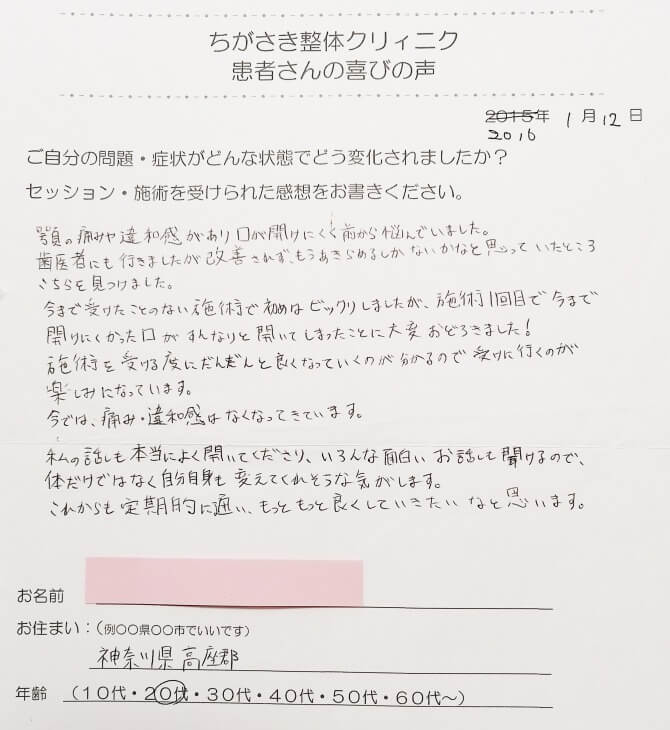 ちがさき整体クリィニク
患者さんの喜びの声
2015年 1月12日
2016
ご自分の問題・症状がどんな状態でどう変化されましたか？
セッション・施術を受けられた感想をお書きください。
顎の痛みや違和感があり口が開けにくく前から悩んでいました。
歯医者にも行きましたが改善されず、もうあきらめるしかないかなと思っていたところ
こちらを見つけました。
今まで受けたことのない施術で初めはビックリしましたが、施術1回目で今まで
開けにくかった口がすんなりと開いてしまったことに大変おどろきました！
施術を受ける度にだんだんと良くなっていくのが分かるので受けに行くのが
楽しみになっています。
今では、痛み・違和感はなくなってきています。
私の話しも本当によく聞いてくださり、いろんな面白いお話しも聞けるので、
体だけではなく自分自身も変えてくれそうな気がします。
これからも定期的に通い、もっともっと良くしていきたいなと思います。
お名前
お住まい：（例〇〇県〇〇市でいいです）
神奈川県高座郡
年齢 （10代・20代・30代・40代・50代・60代～）